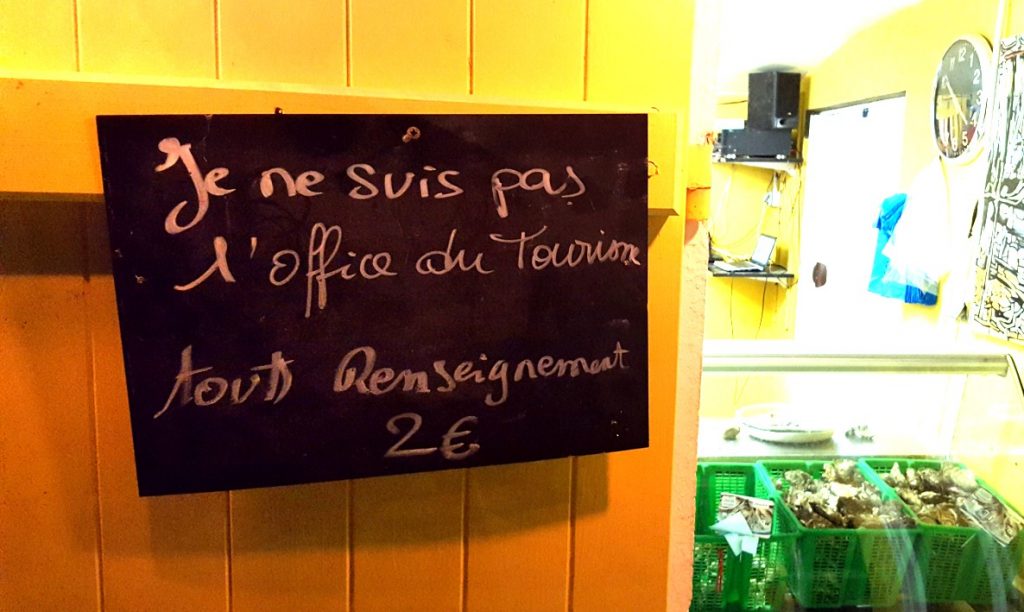 Je ne suis pas
l'office du Tourisme
touts Renseignement
2€